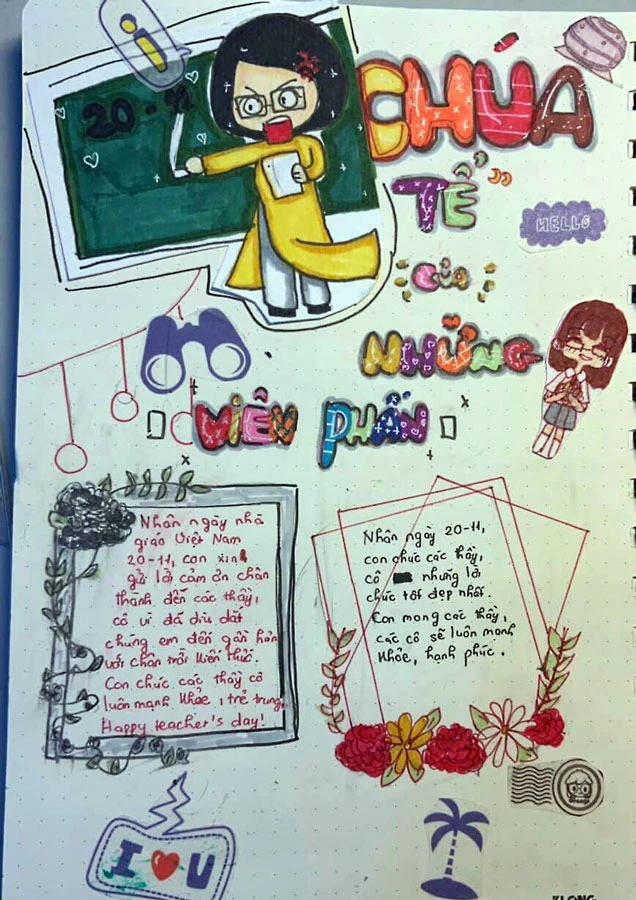 i
20-11
CHÚA
TỂ
HELLO
của
NHỮNG
VIÊN PHẤN
Nhân ngày nhà
giáo Việt Nam
20-11, con xin
gửi lời cảm ơn chân
thành đến các thầy,
cô vì đã dìu dắt
chúng em đến gần hơn
với chân trời kiến thức.
Con chúc các thầy cô
luôn mạnh khỏe, trẻ trung,
Happy teacher's day!
Nhân ngày 20-11,
con chúc các thầy,
cô những lời
chúc tốt đẹp nhất.
Con mong các thầy,
các cô sẽ luôn mạnh
khỏe, hạnh phúc.
I ❤ U
KLONG